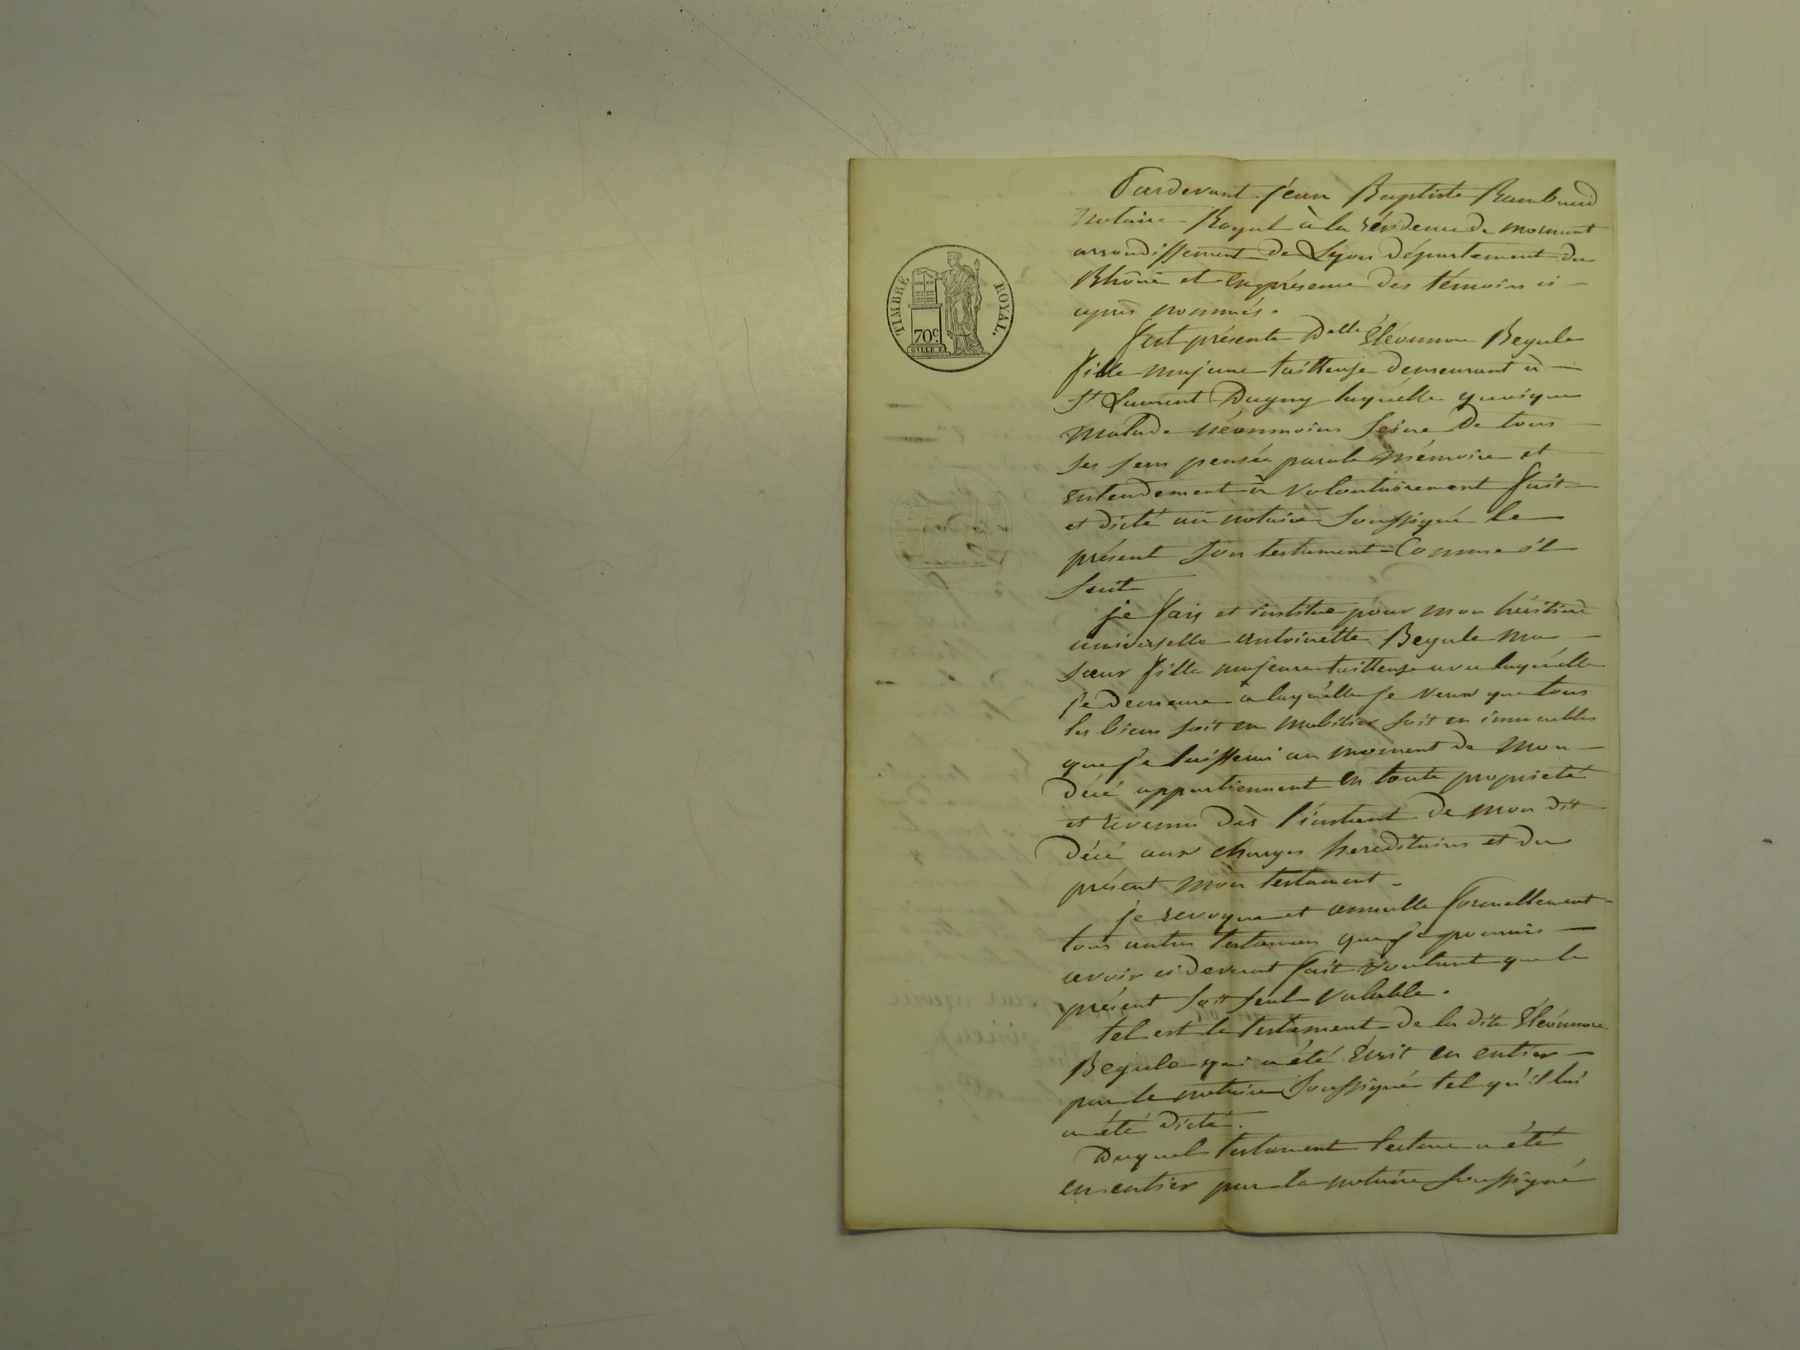 TIMBRE ROYAL.
70c.
Pardevant Jean Baptiste Rambaud
Notaire Royal à la résidence de mornant
arrondissement de Lyon département du
Rhône et en présence des témoins ci
après nommés.
fut présente Delle Éléonnore Begule
fille majeure tailleuse demeurant à
St Laurent Dagny laquelle quoique
malade néanmoins saine de tous
ses sens pensée parole mémoire et
entendement à volontairement fait
et dicté au notaire soussigné le
présent son testament Comme s'il
suit
je fais et institue pour mon héritière
universelle antoinette Begule ma
sœur fille majeure tailleuse avec laquelle
je demeure à laquelle je veux que tous
les biens soit en mobilier soit en immeubles
que je laisserai au moment de mon
décé appartiennent en toute propriété
et revenu dès l'instant de mon dit
décé aux charges héréditaires et du
présent mon testament.
je revoque et annulle formellement
tous autres testamens que je pourrais
avoir ci devant fait voulant que le
présent soit seul valable.
tel est le testament de la dite Éléonnore
Begule qui a été écrit en entier
par le notaire soussigné tel qu'il lui
a été dicté.
Duquel testament lecture a été
en entier par le notaire soussigné